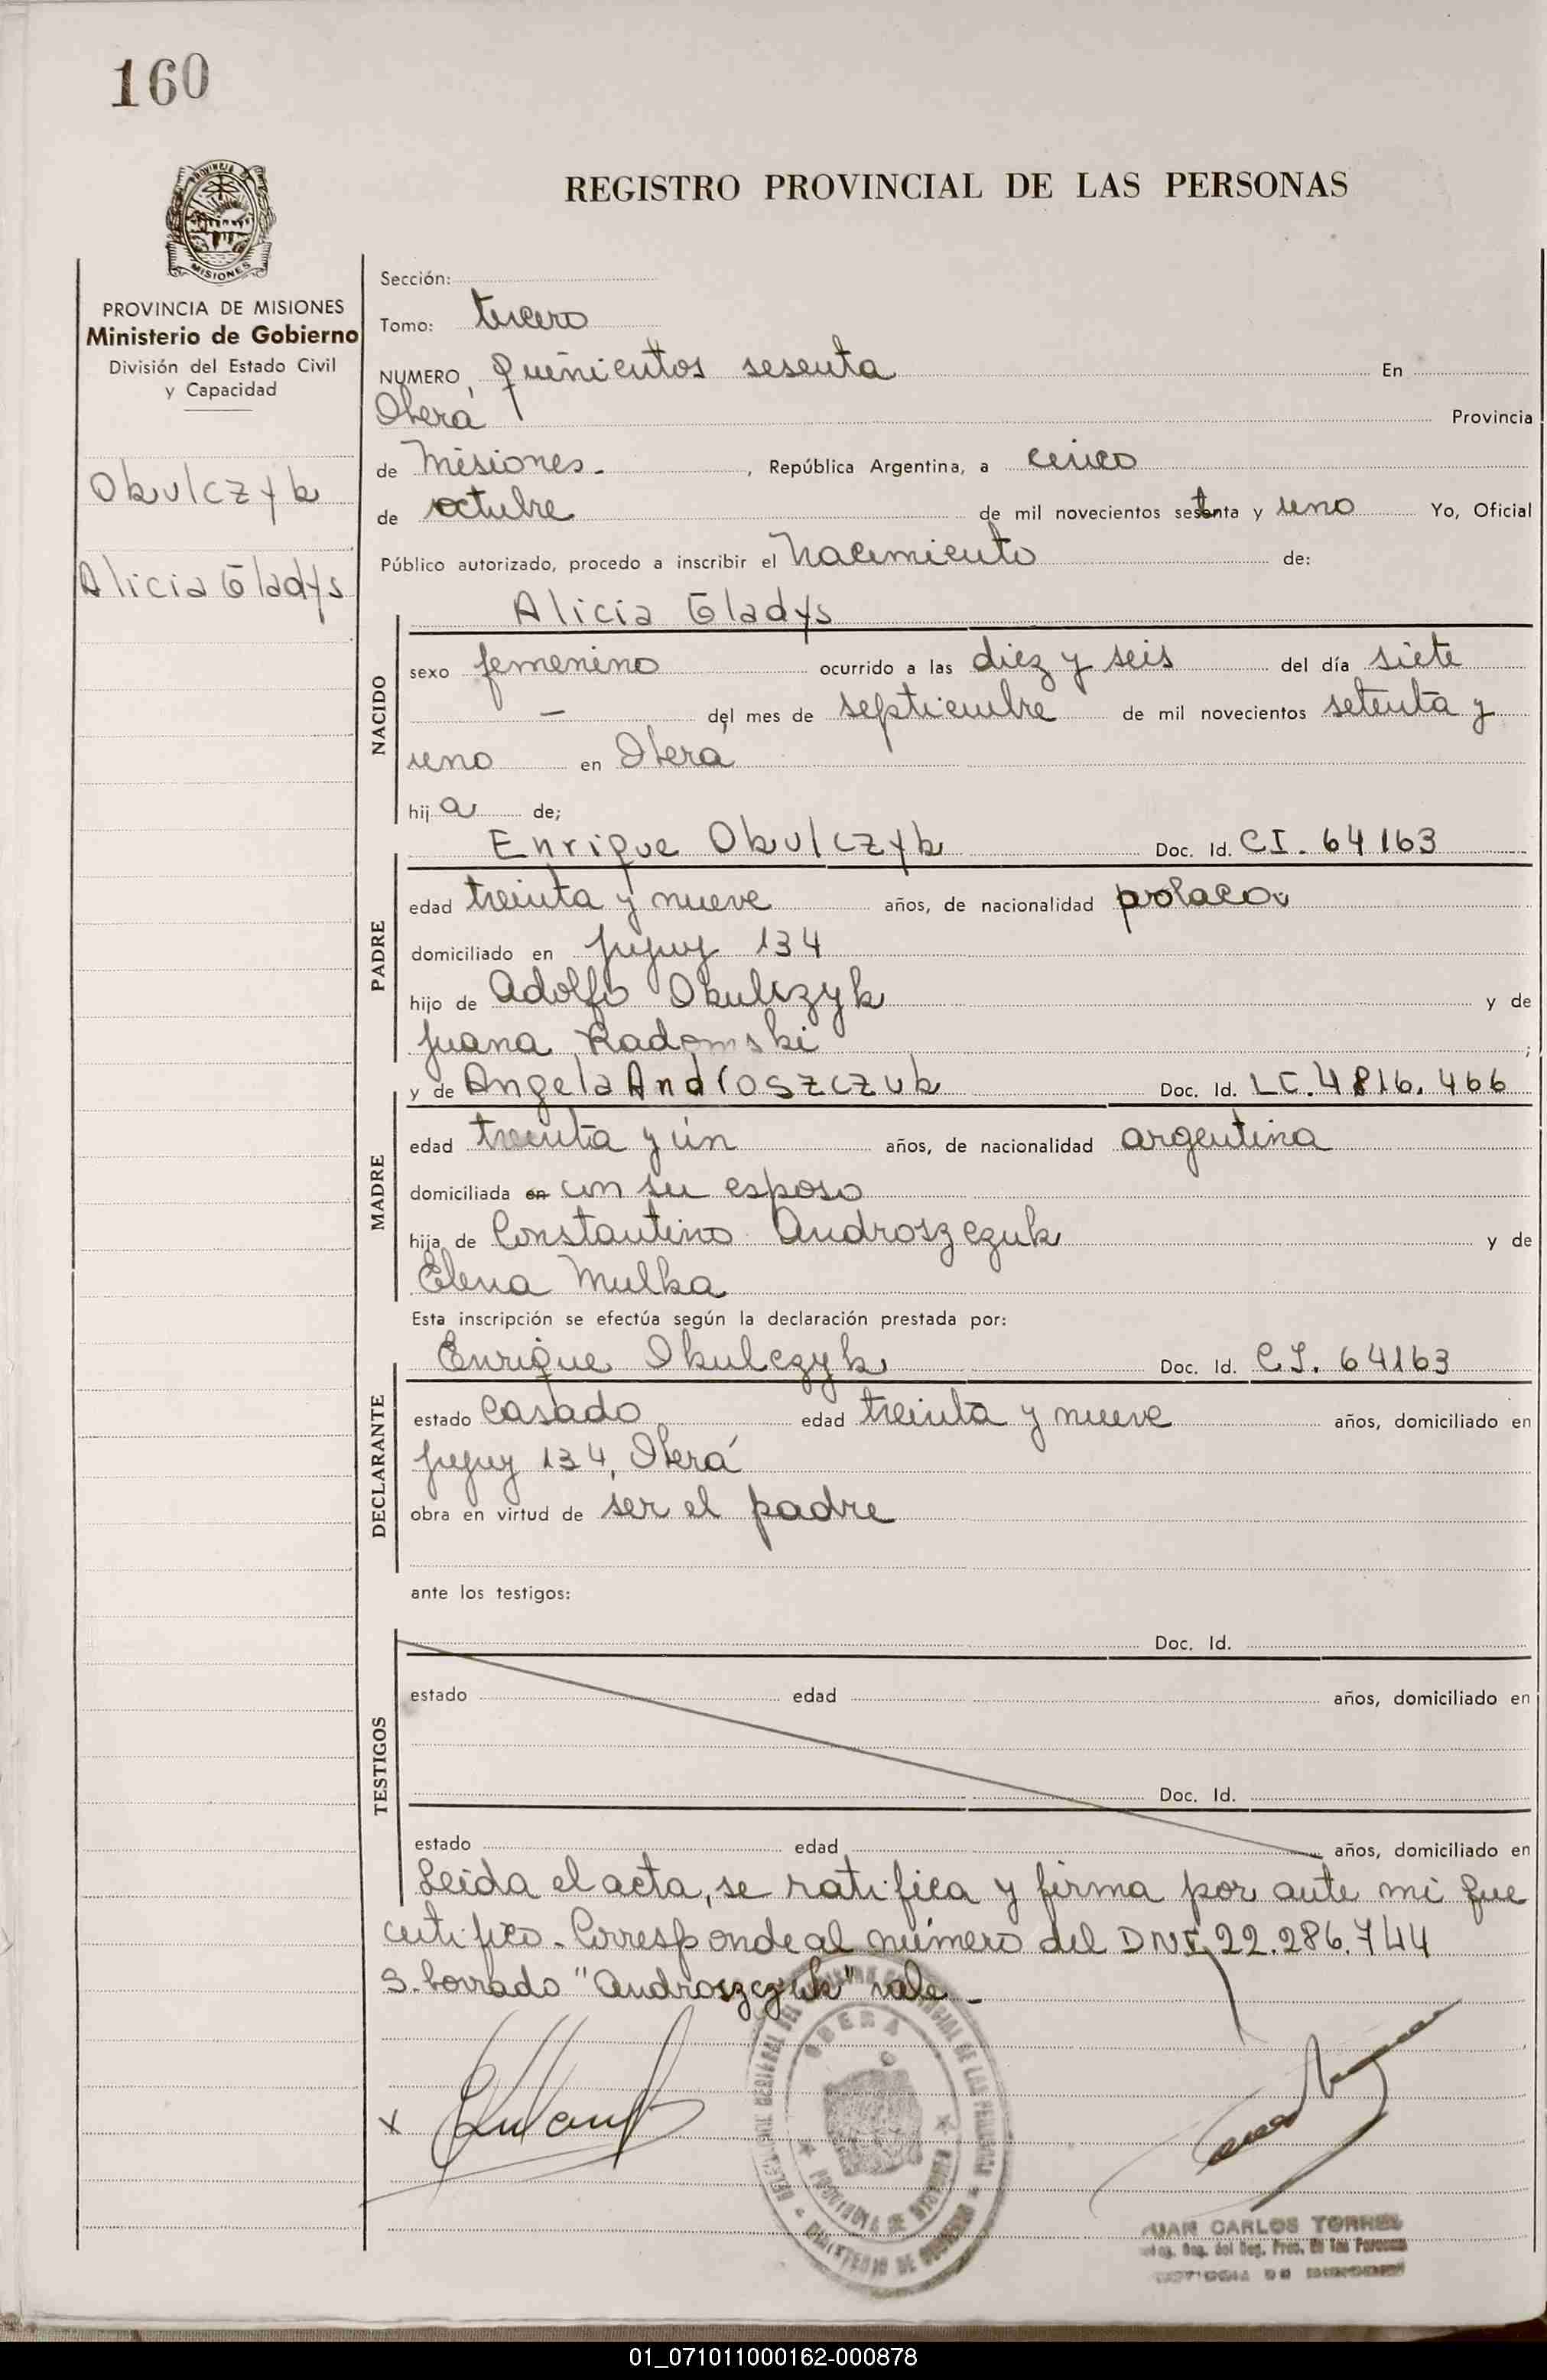 160
PROVINCIA DE
MISIONES
REGISTRO PROVINCIAL DE LAS PERSONAS
PROVINCIA DE MISIONES
Ministerio de Gobierno
División del Estado Civil
y Capacidad
Okulczyk
Alicia Gladys
Sección:
Tomo: tercero
NUMERO quinientos sesenta En
Oberá Provincia
de Misiones.- , República Argentina, a cinco
de octubre de mil novecientos setenta y uno Yo, Oficial
Público autorizado, procedo a inscribir el nacimiento de:
Alicia Gladys
NACIDO
sexo femenino ocurrido a las diez y seis del día siete
— del mes de septiembre de mil novecientos setenta y
uno en Oberá
hij a de;
Enrique Okulczyk Doc. Id. CI. 64163
PADRE
edad treinta y nueve años, de nacionalidad polaco
domiciliado en Jujuy 134
hijo de Adolfo Okulczyk y de
Juana Radomski ;
y de Angela Androszczuk Doc. Id. LC. 4816.466
MADRE
edad treinta y ún años, de nacionalidad argentina
domiciliada en con su esposo
hija de Constantino Androszczuk y de
Elena Mulka
Esta inscripción se efectúa según la declaración prestada por:
Enrique Okulczyk Doc. Id. C.I. 64163
DECLARANTE
estado casado edad treinta y nueve años, domiciliado en
Jujuy 134, Oberá
obra en virtud de ser el padre
ante los testigos:
TESTIGOS
Doc. Id.
estado edad años, domiciliado en
Doc. Id.
estado edad años, domiciliado en
Leida el acta, se ratifica y firma por ante mi que
certifico.- Corresponde al número del DNI, 22.286.744
S. borrado "Androszczuk" vale.-
x
OBERA
PROVINCIA DE MISIONES
MINISTERIO DE GOBIERNO
JUAN CARLOS TORRES
01_071011000162-000878